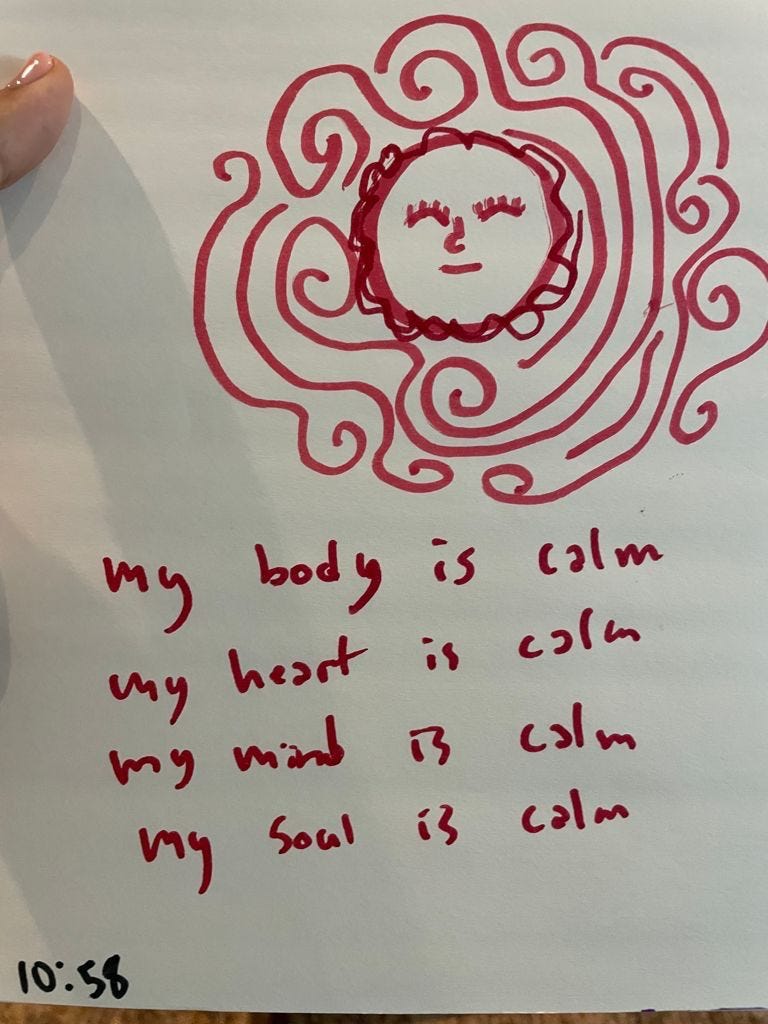 my body is calm
my heart is calm
my mind is calm
my soul is calm
10:58